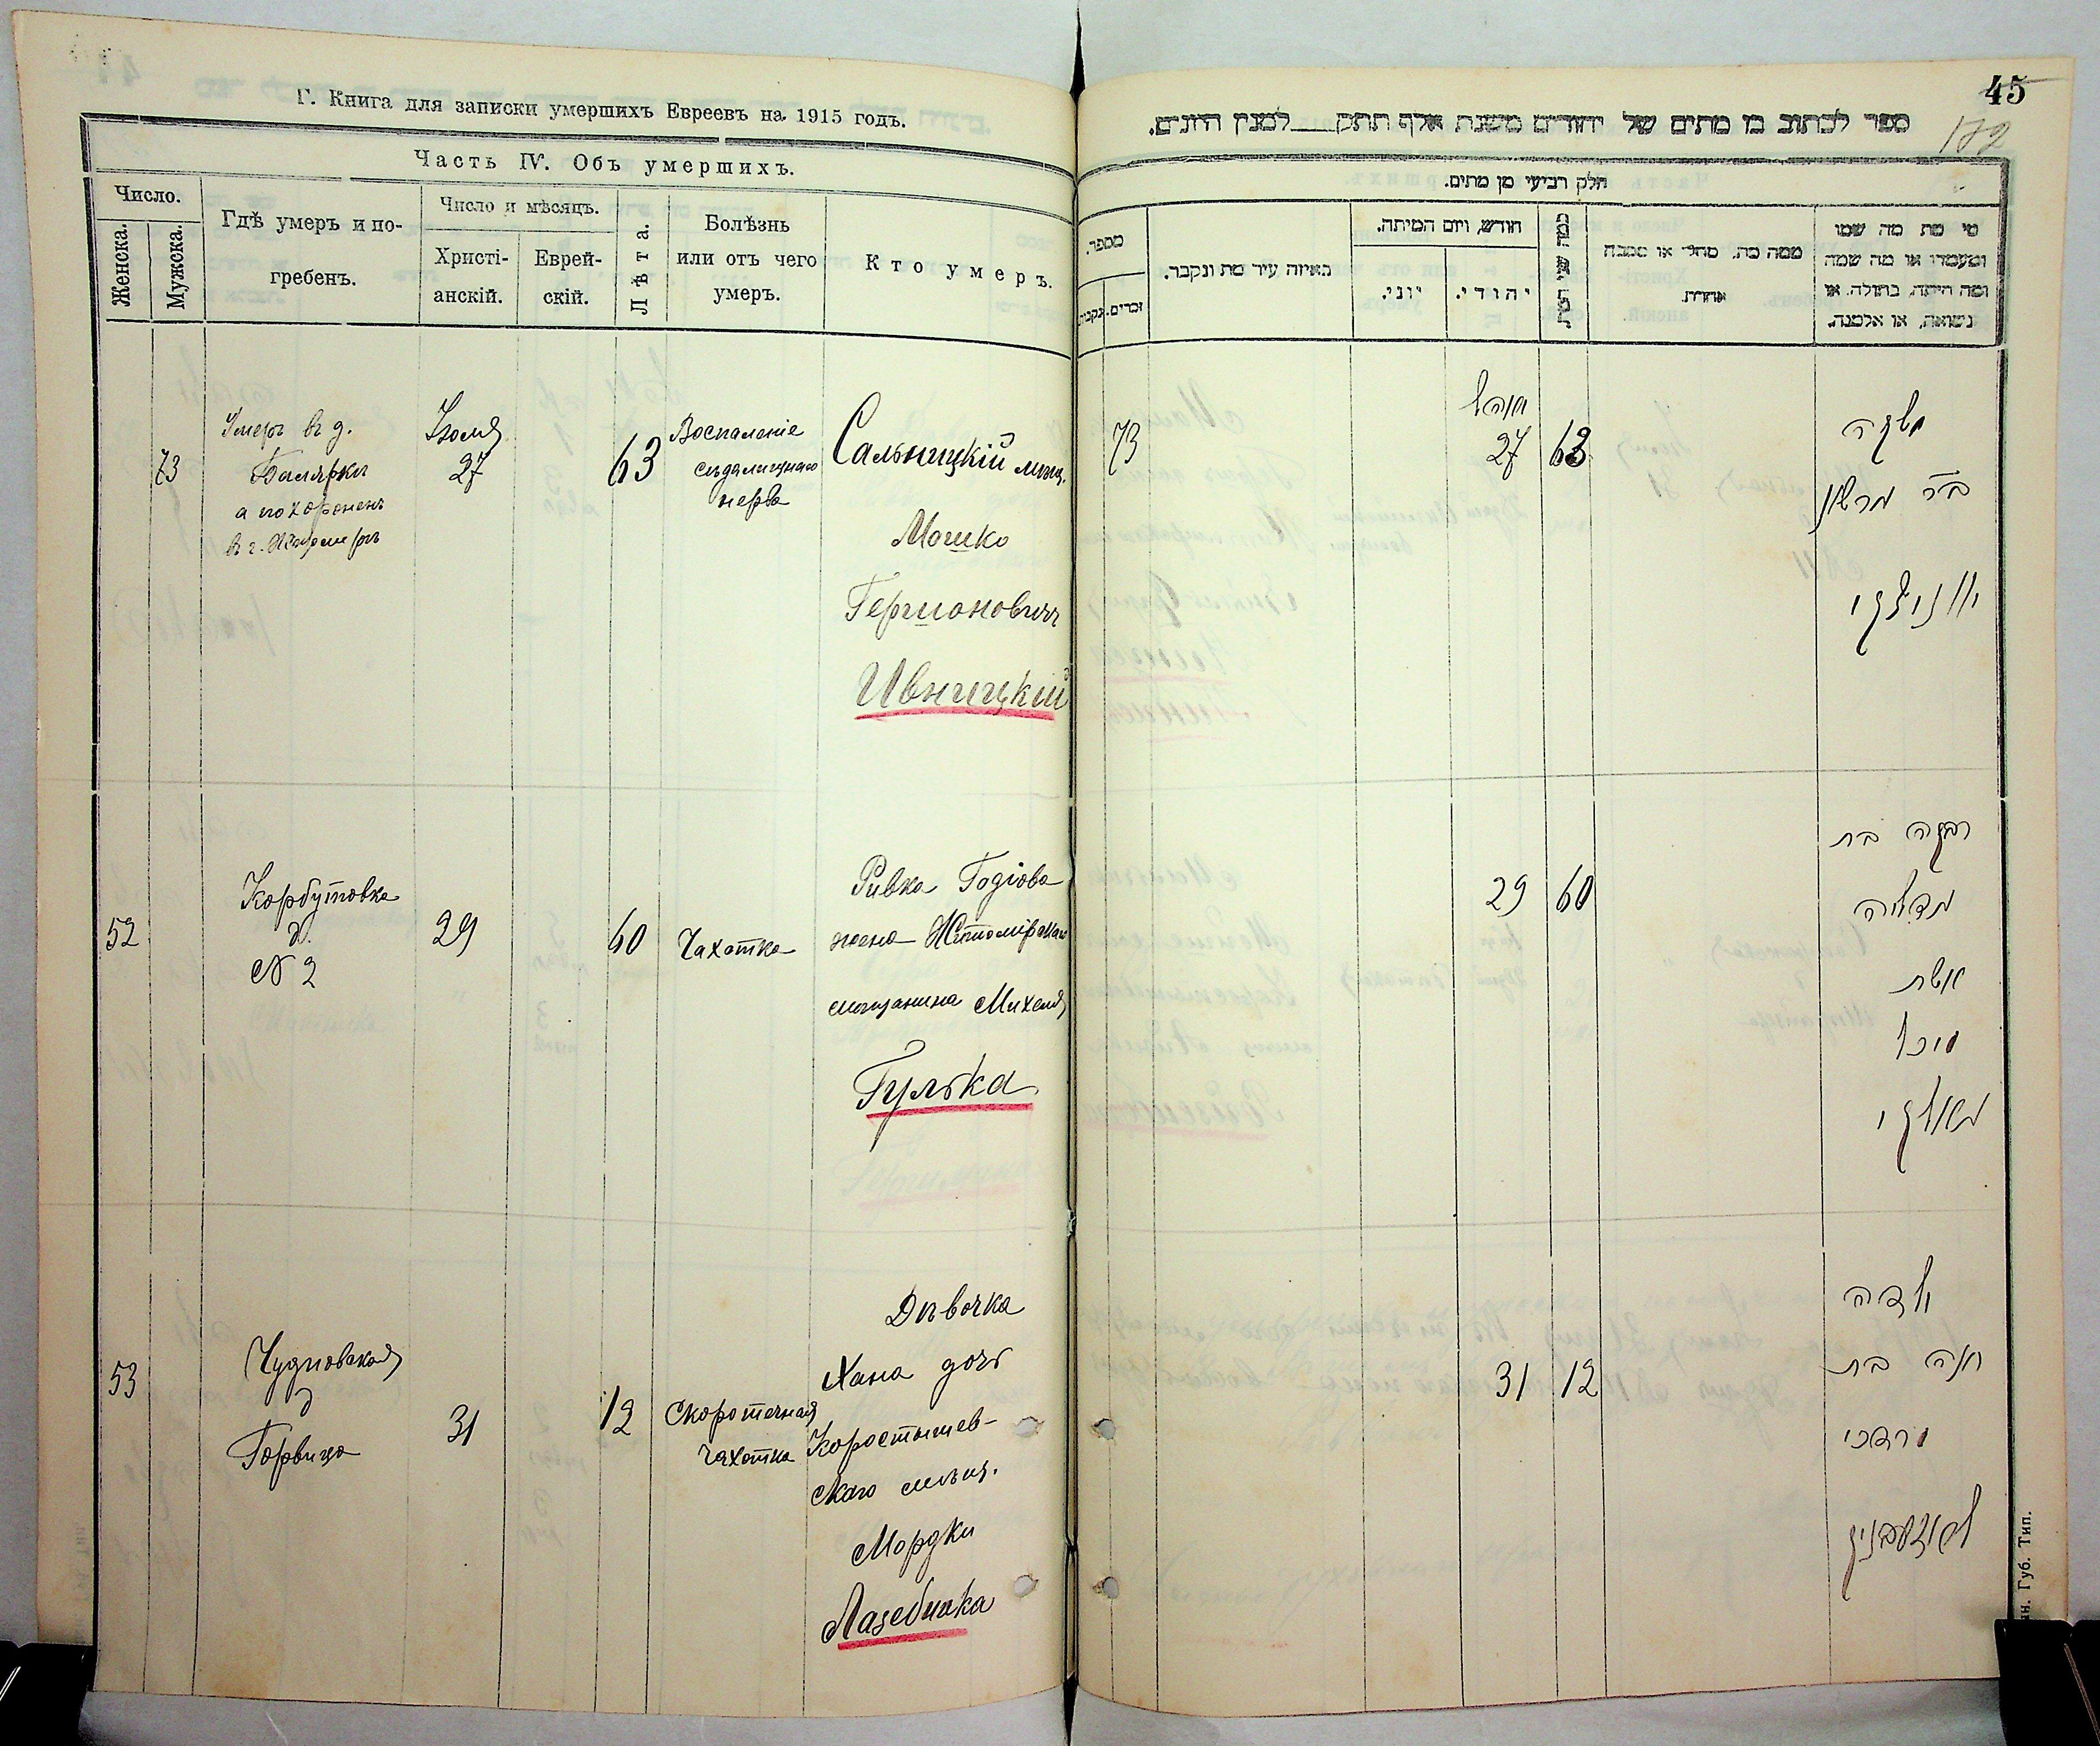 Г. Книга для записки умершихъ Евреевъ на 1915 годъ.
Часть IV. Объ умершихъ.
Число.
Женска.
Мужска.
Гдѣ умеръ и по-
гребенъ.
Число и мѣсяцъ.
Христі-
анскій.
Еврей-
скій.
Лѣта.
Болѣзнь
или отъ чего
умеръ.
Кто умеръ.
73
Умеръ въ д.
Болярки
а похороненъ
въ г. Житомирѣ
Іюля
27
63
Воспаленіе
сѣдалищнаго
нерва
Сальницкій мѣщ.
Мошко
Гершоновичъ
Ивницкій
52
Корбутовка
д.
№ 2
29
60
Чахотка
Ривка Годіова
жена Житомірскаго
мѣщанина Михеля
Гулька
53
Чудновская
д
Горвица
31
12
Скоротечная
чахотка
Дѣвочка
Хана дочь
Коростышев-
скаго мѣщ.
Мордки
Лазебника
45
172
ספר לכתוב בו מתים של יהודים משנת אלף תתק למנין היונים.
חלק רביעי מן מתים.
מספר.
זכרים.
נקבות
באיזה עיר מת ונקבר.
חודש, ויום המיתה.
יוני.
יהודי.
כמה שני המת
ממה מת, מחלי או מסבה
אחרת
מי מת מה שמו
ומעמדו או מה שמה
ומה היתה, בתולה, או
נשואה, או אלמנה.
73
27
63
משה
בר גרשון
יוניצקי
29
60
רבקה בת
גדליה
אשת
מיכל
31
12
ילדה
חנה בת
מרדכי
ан. Губ. Тип.